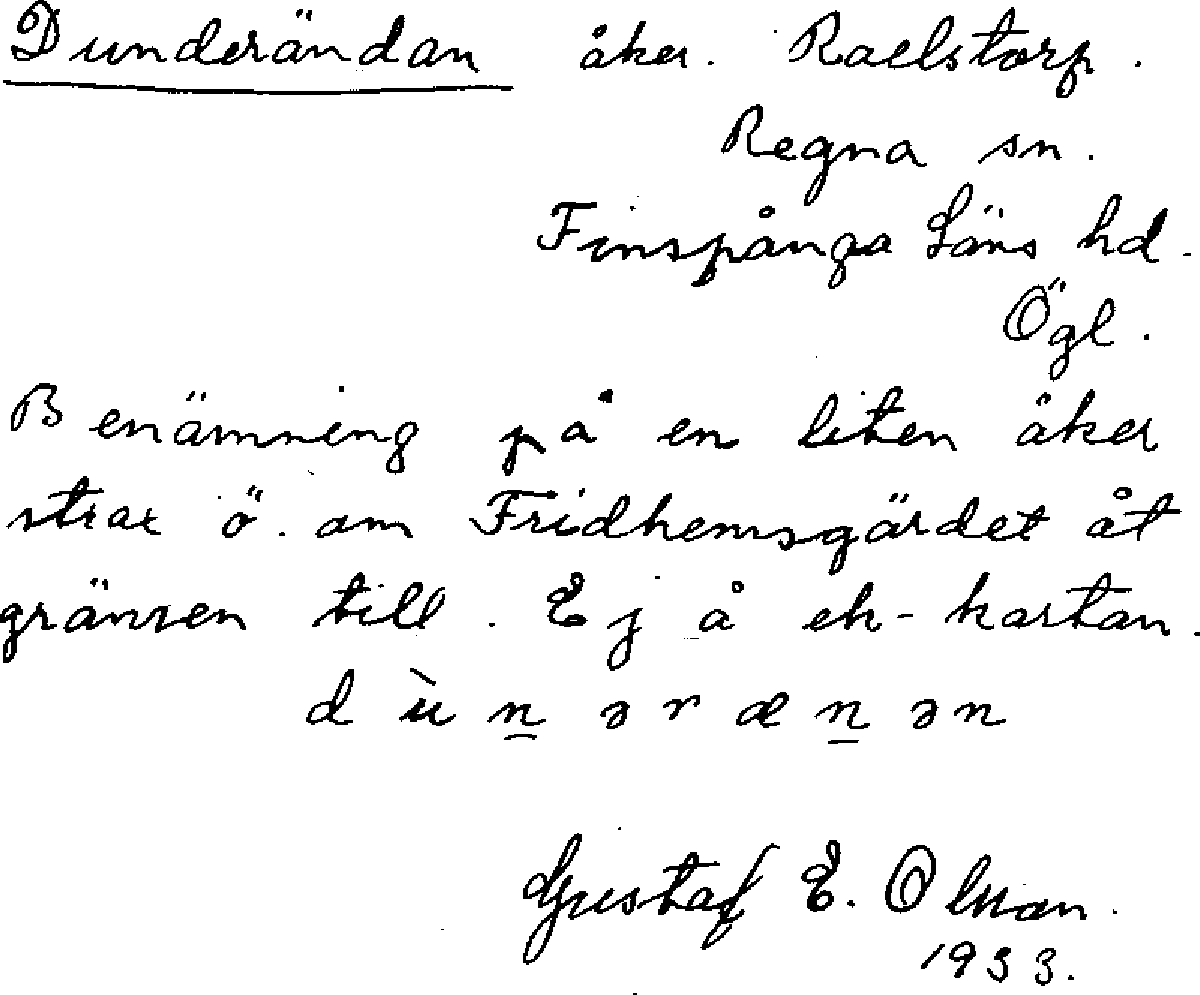 Dunderändan åker. Raelstorp.
Regna sn.
Finspånga Läns hd.
Ögl.
Benämning på en liten åker
strax ö. om Fridhemsgärdet åt
gränsen till. Ej å ek-kartan.
dùn̲əræn̲ən
Gustaf E. Olsson.
1933.